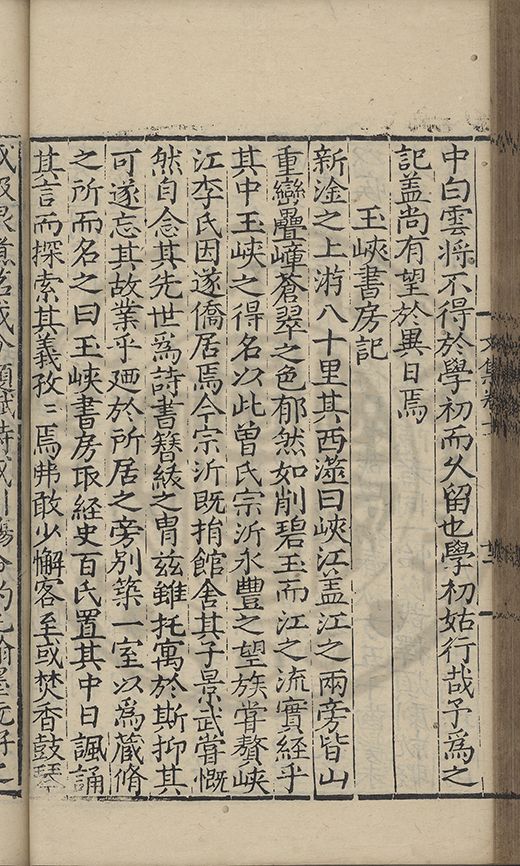 中白雲将不得於學初而久留也學初姑行哉予爲之
記盖尚有望於異日焉
玉峽書房記
新淦之上游八十里其西滋曰峽江盖江之兩旁皆山
重巒疊嶂蒼翠之色郁然如削碧玉而江之流實経乎
其中玉峽之得名以此曾氏宗沂永豐之望族甞贅峽
江李氏因遂僑居焉今宗沂既捐館舎其子景武甞慨
然自念其先世爲詩書簪紱之胄茲雖托寓於斯抑其
可遂忘其故業乎廼於所居之旁别築一室以爲蔵脩
之所而名之曰玉峽書房取経史百氏置其中日諷誦
其言而探索其義孜〻焉弗敢少懈客至或焚香鼓琴